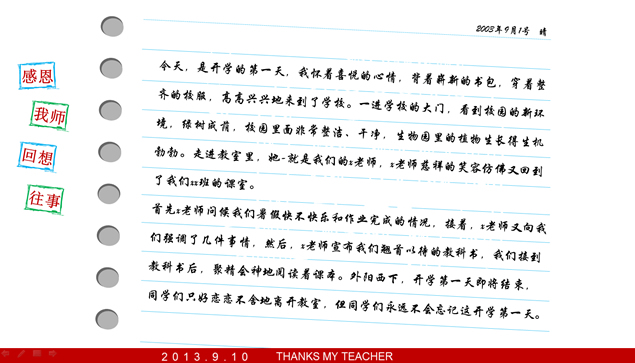 2003年9月1号 晴
今天，是开学的第一天，我怀着喜悦的心情，背着崭新的书包，穿着整
齐的校服，高高兴兴地来到了学校。一进学校的大门，看到校园的新环
境，绿树成荫，校园里面非常整洁、干净，生物园里的植物生长得生机
勃勃。走进教室里，她-就是我们的x老师，x老师慈祥的笑容仿佛又回到
了我们xx班的课室。
首先x老师问候我们暑假快不快乐和作业完成的情况，接着，x老师又向我
们强调了几件事情，然后，x老师宣布我们翘首以待的教科书，我们接到
教科书后，聚精会神地阅读着课本。外阳西下，开学第一天即将结束，
同学们只好恋恋不舍地离开教室，但同学们永远不会忘记这开学第一天。
感恩
我师
回想
往事
2013.9.10 THANKS MY TEACHER